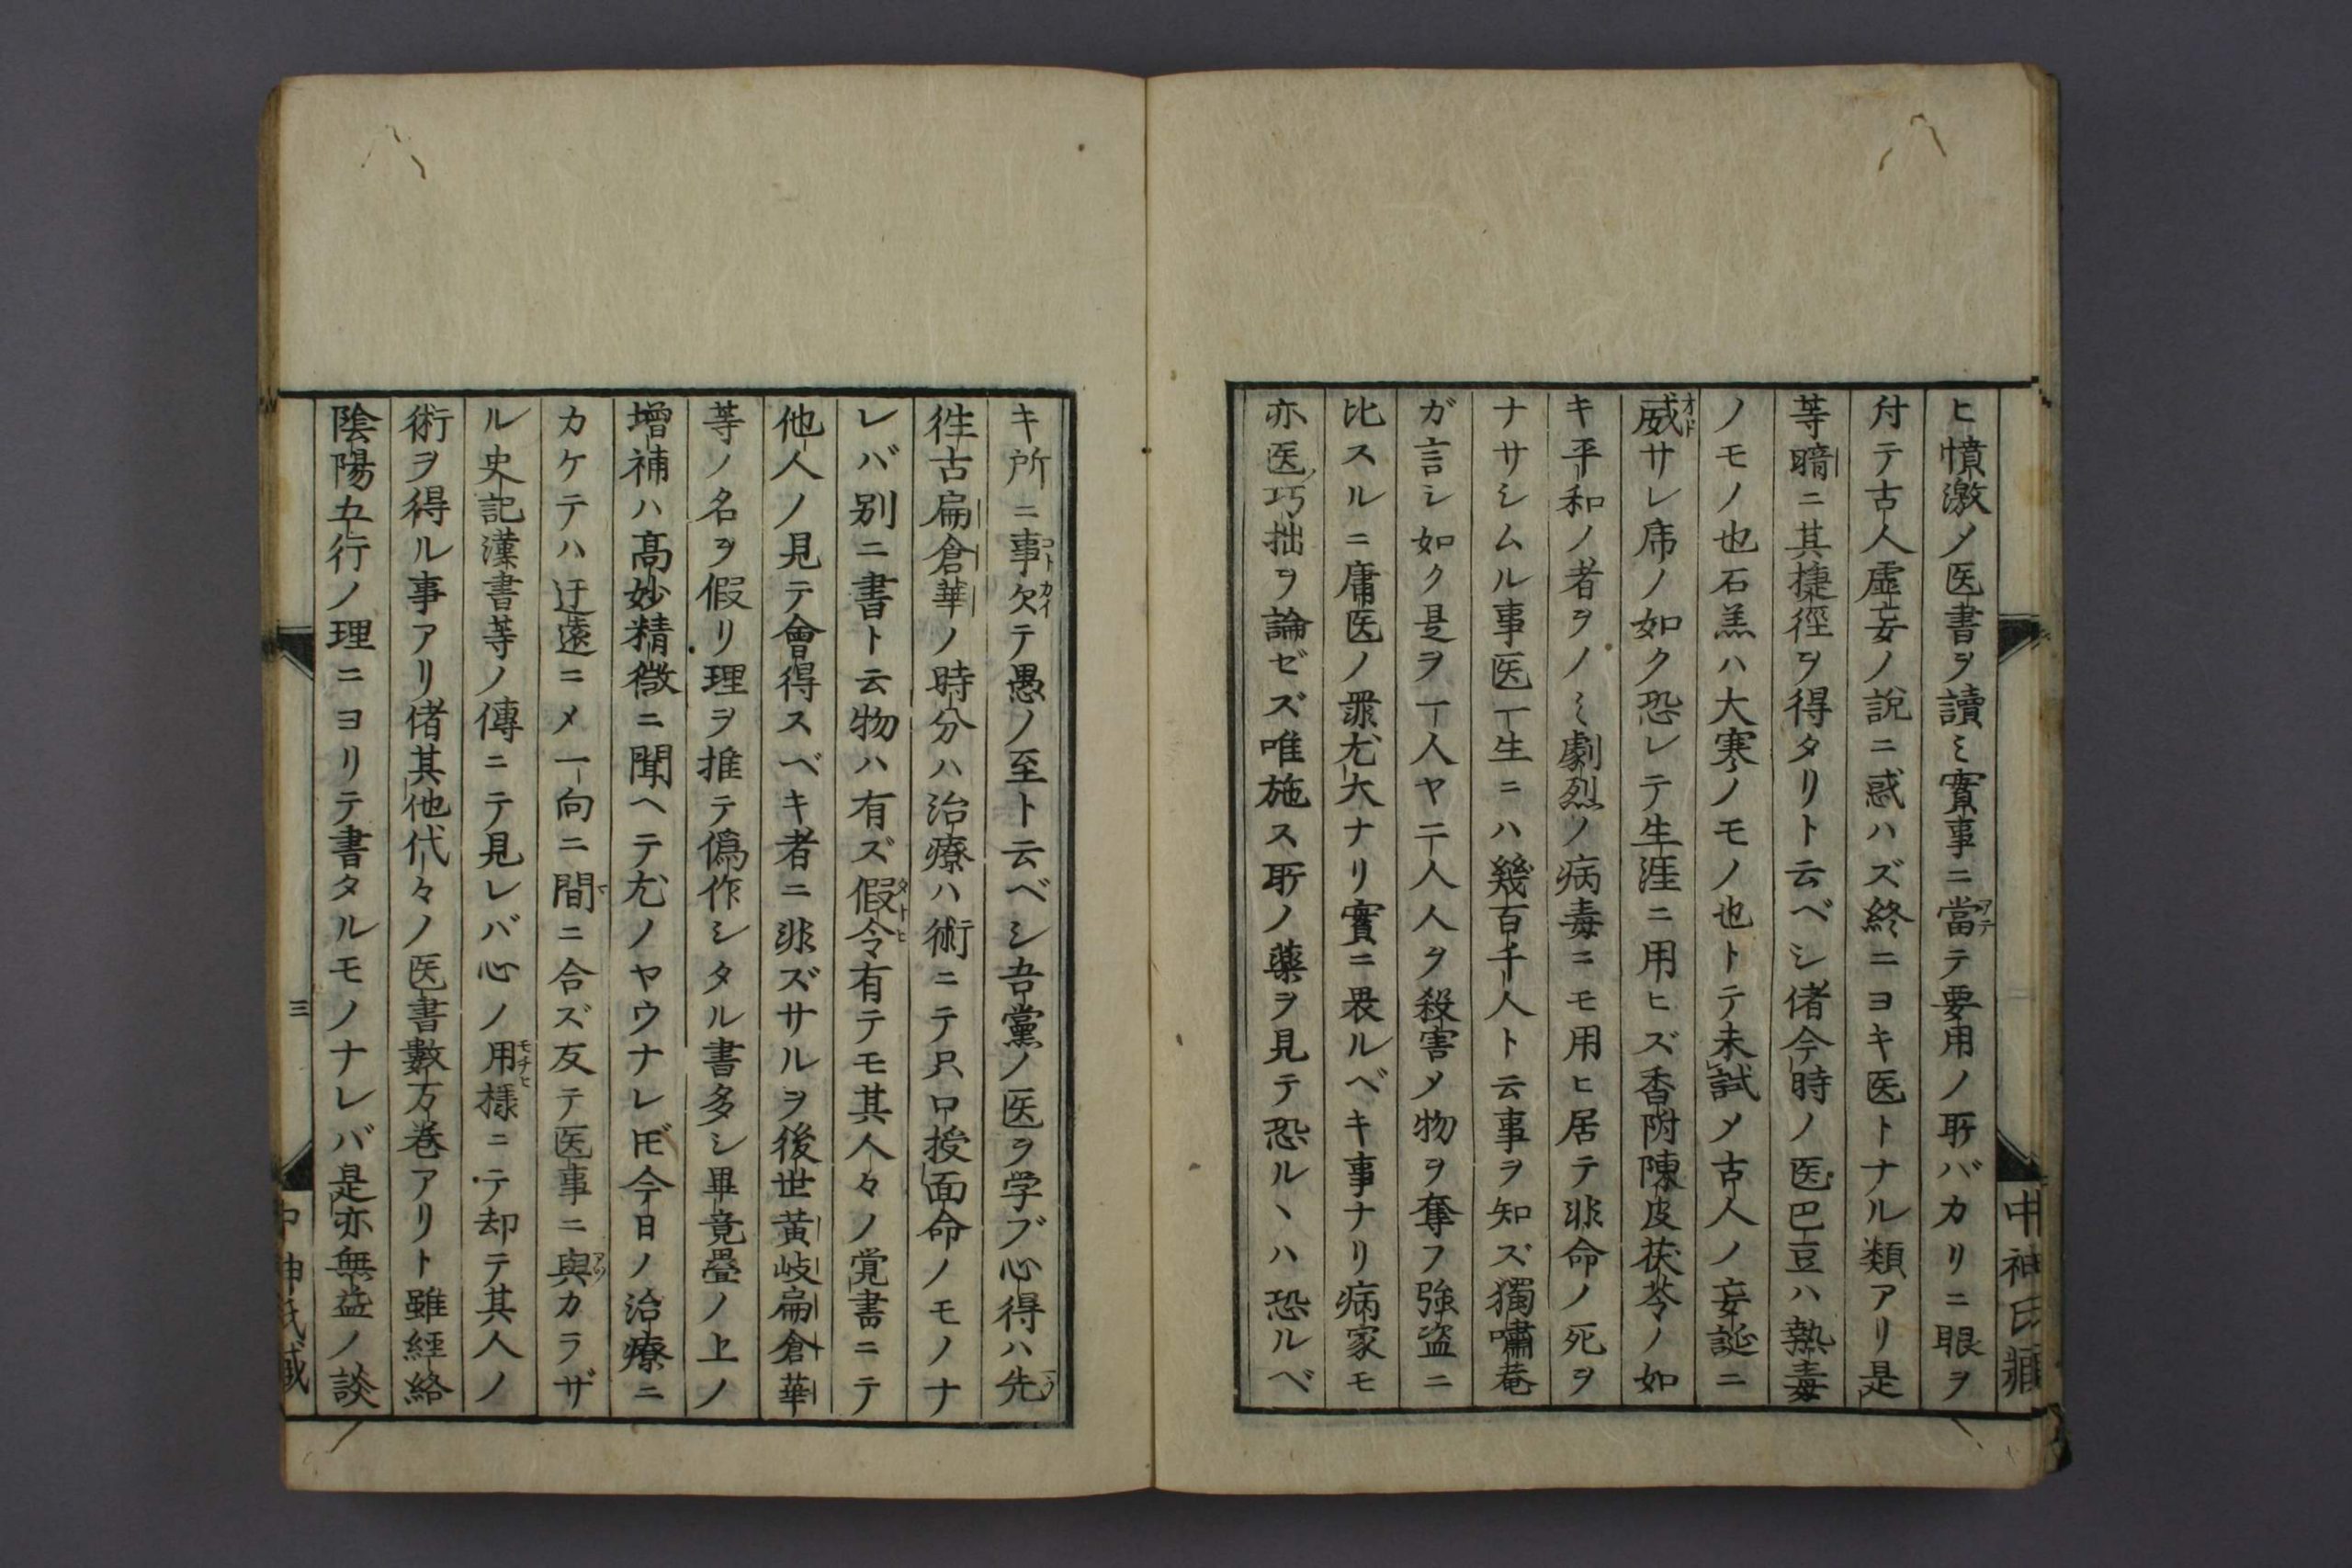 ヒ憤激〆医書ヲ讀ミ實事ニ當テ要用ノ所バカリニ眼ヲ
付テ古人虚妄ノ説ニ惑ハズ終ニヨキ医トナル類アリ是
等暗ニ其捷徑ヲ得タリト云ベシ偖今時ノ医巴豆ハ熱毒
ノモノ也石羔ハ大寒ノモノ也トテ未試〆古人ノ妄誕ニ
威サレ席ノ如ク恐レテ生涯ニ用ヒズ香附陳皮茯苓ノ如
キ平和ノ者ヲノミ劇烈ノ病毒ニモ用ヒ居テ非命ノ死ヲ
ナサシムル事医一生ニハ幾百千人ト云事ヲ知ズ獨嘯菴
ガ言シ如ク是ヲ一人ヤ二人人ヲ殺害〆物ヲ奪フ強盗ニ
比スルニ庸医ノ罪尤大ナリ實ニ畏ルベキ事ナリ病家モ
亦医ノ巧拙ヲ論ゼズ唯施ス所ノ藥ヲ見テ恐ルヽハ恐ルベ
中神氏藏
キ所ニ事欠テ愚ノ至ト云ベシ吾黨ノ医ヲ学ブ心得ハ先
徃古扁倉華ノ時分ハ治療ハ術ニテ只口授面命ノモノナ
レバ別ニ書ト云物ハ有ズ假令有テモ其人々ノ覚書ニテ
他人ノ見テ會得スベキ者ニ非ズサルヲ後世黄岐扁倉華
等ノ名ヲ假リ理ヲ推テ僞作シタル書多シ畢竟疊ノ上ノ
増補ハ高妙精微ニ聞ヘテ尤ノヤウナレ𪜈今日ノ治療ニ
カケテハ迂遠ニ〆一向ニ間ニ合ズ反テ医事ニ與カラザ
ル史記漢書等ノ傳ニテ見レバ心ノ用様ニテ却テ其人ノ
術ヲ得ル事アリ偖其他代々ノ医書數万巻アリト雖経絡
陰陽五行ノ理ニヨリテ書タルモノナレバ是亦無益ノ談
三
中神氏藏